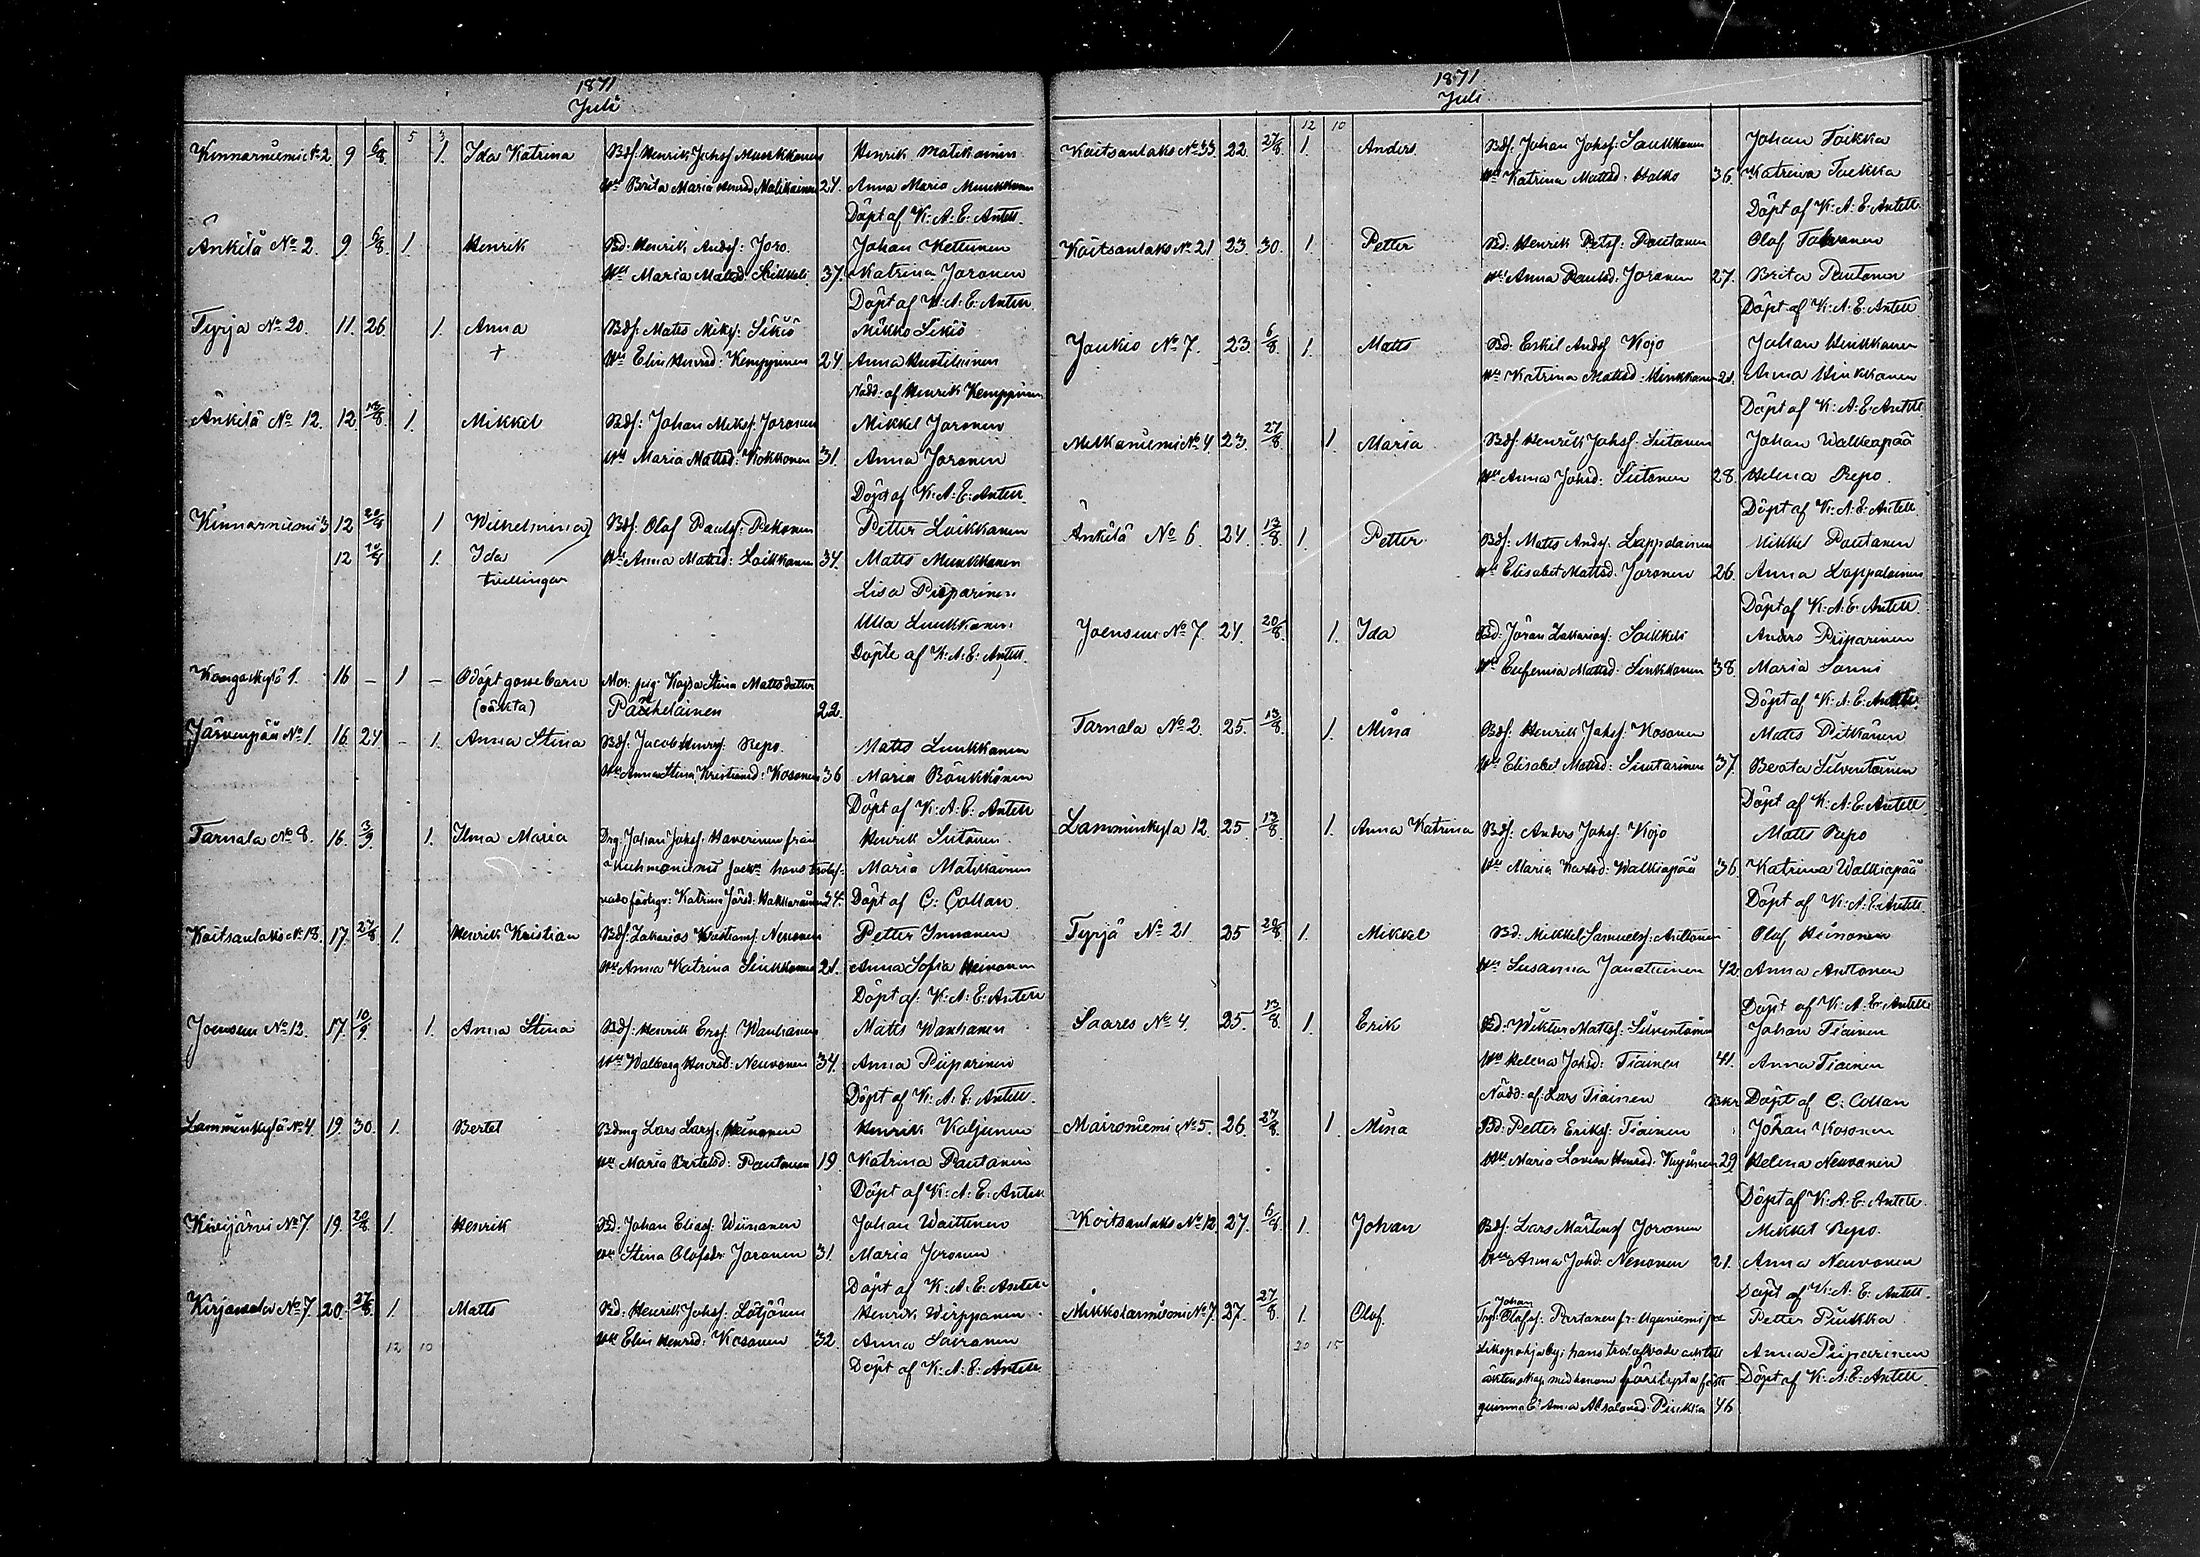 1871
Juli
5 3
Kinnarniemi № 2. 9 6/8 1. Ida Katrina Bdf. Henrik Johsf. Munkkanen Henrik Matikainen
Hu Brita Maria Henrsd. Matikainen 24. Anna Maria Munkkanen
Döpt af K: A: E: Antell.
Änkilä № 2. 9 6/8 1. Henrik Bd: Henrik Andsf: Joro. Johan Kettunen
Hu Maria Mattsd. Seikkeli 37. Katrina Joronen
Döpt af K: A: E: Antell
Tyrja № 20. 11. 26 1. Anna Bdf: Matts Miksf: Sikiö Mikko Sikiö
+ Hu Elin Henrsd: Kemppinen 24. Anna
Nödd: af Henrik Kemppinen
Änkilä № 12. 12 1. Mikkel Bdf: Johan Miksf: Joronen Mikkel Joronen
Hu Maria Mattsd: Kokkonen 31. Anna Joronen
Döpt af K: A: E: Antell.
Kinnarniemi 3. 12 20/8 1 Wilhelmina Bdf. Olof Paulsf: Pekonen Petter Laikkanen
12 1. Ida Hu Anna Mattsd: Laikkanen 34. Matts Munkkanen
tvillingar Lisa Piiparinen
Ulla Luukkanen
Döpte af K: A: E: Antell.
Kangaskylä 1. 16 – 1 – Odöpt gossebarn Mor: pig. Kajsa Stina Mattsdotter
(oäkta) 22.
Järvenpää № 1. 16. 24 – 1. Anna Stina Bdf: Jacob Henrsf: Repo. Matts Luukkanen
Hu Anna Stina Kristiansd: Kosonen 36 Maria Räikkönen
Döpt af K: A: E: Antell
Tarnala № 8. 16. 3/9. 1. Ilma Maria Drg. Johan Johsf. Haverinen från Henrik Sutinen
hans Maria Matikainen
Katrina 34. Döpt af C: Collan.
Koitsanlaks № 18. 17. 27/8 1. Henrik Kristian Bdf. Zakarias Kristiansf. Nenonen Petter Innanen
Hu Anna Katrina Sinkkonen 21. Anna Sofia Heinonen
Döpt af: K: A: E: Antell
Joensuu № 12. 17. 10/9. 1. Anna Stina Bdf: Henrik Ersf. Wanhanen Matts Wanhanen
Hu Walborg Henrsd: Neuvonen 34. Anna Piiparinen
Döpt af K: A: E: Antell.
Lamminkylä № 4. 19. 30. 1. Bertel Bdmg Lars Larsf. Heinonen Henrik Kaljunen
Hu Maria Bertelsd: Pautanen 19. Katrina Pautanen
Döpt af K: A: E: Antell
Kivijärvi № 7 19. 20/8 1. Henrik Bd. Johan Eliasf. Wiinanen Johan Waittinen
Hu Stina Olofsdr Joronen 31. Maria Joronen
Döpt af K: A: E. Antell
Kirjavala № 7. 20. 27/8. 1 Matts Bd: Henrik Johsf: Lötjönen Henrik Wirppanen
Hu Elin Henrsd: Kosonen 32. Anna Sairanen
12 10 Döpt af K: A: E: Antell
1871
Juli
12 10
Koitsanlaks № 33. 22. 27/8. 1. Anders Bdf. Johan Johsf: Saukkonen Johan Toikka
Hu Katrina Mattsd. Halko 36. Katrina Toikka
Döpt af K: A: E. Antell.
Koitsanlaks № 21 23 30. 1. Petter Bd: Henrik Petsf: Pautanen Olof Tahvonen
Hu Anna Paulsd: Joronen 27. Brita Pautanen
Döpt af K: A: E: Antell.
Joukio № 7. 23. 6/8. 1. Matts Bd. Eskil Andsf Kojo Johan Hinkkanen
Hu Katrina Mattsd: Hinkkanen 21. Anna Hinkkanen
Döpt af K: A: E: Antell.
Melkaniemi № 4 23. 27/8. 1. Maria Bdf. Henrik Johsf. Sutonen Johan Walkeapää
Hu Anna Johsd: Sutonen 28. Helena Repo.
Döpt af K: A: E. Antell
Änkilä № 6. 24. 13/8. 1. Petter Bdf: Matts Andsf. Lappalainen Mikkel Pautanen
Hu Elisabet Mattsd. Joronen 26. Anna Lappalainen
Döpt af K: A: E: Antell.
Joensuu № 7. 24. 20/8. 1. Ida Bd: Jöran Zakariasf. Seikkeli Anders Piiparinen
Hu Eufemia Mattsd: Sinkkonen 38. Maria Sanni
Döpt af K: A: E: Antell.
Tarnala № 2. 25. 13/8. 1. Mina Bdf: Henrik Johsf. Kosonen Matts Pitkänen
Hu Elisabet Mattsd: Suutarinen 37. Beata Silventoinen
Döpt af K: A: E. Antell
Lamminkylä 12. 25 13/8 1. Anna Katrina Bdf: Anders Johsf: Kojo Matts Repo
Hu Maria Karlsd: Walkiapää 36 Katrina Walkiapää
Döpt af K: A: E: Antell.
Tyrjä № 21 25 20/8 1. Mikkel Bd. Mikkel Samuelsf: Anttonen Olof Heinonen
Hu Susanna Janatuinen 42. Anna Anttonen
Döpt af K: A: E: Antell
Saares № 4. 25. 13/8. 1. Erik Bd: Wiktor Mattsf: Silventoinen Johan Tiainen
Hu Helena Johsd: Tiainen 41. Anna Tiainen
Nödd: af: Lars Tiainen Döpt af C: Collan
Mairaniemi № 5. 26. 27/8. 1. Mina Bd: Petter Eriksf: Tiainen Johan Kosonen
Hu Maria Lovisa Henrsd. 29) Helena Neuvonen
Döpt af K: A: E: Antell.
Koitsanlaks № 12. 27. 6/8. 1. Johan Bdf: Lars Mårtensf Joronen Mikkel Repo.
Hu Anna Johsd. Nenonen 21. Anna Neuvonen
Döpt af K: A: E. Antell.
27. 27/8. 1. Olof. Johan Olofsf: Partanen fr: Uguniemi Petter Piukka
20 15 by; hans trolofvade Anna Piiparinen
äktenskap med honom Döpt af K: A: E: Antell
qvinna E: Anna Absalonsd: Piukka 46